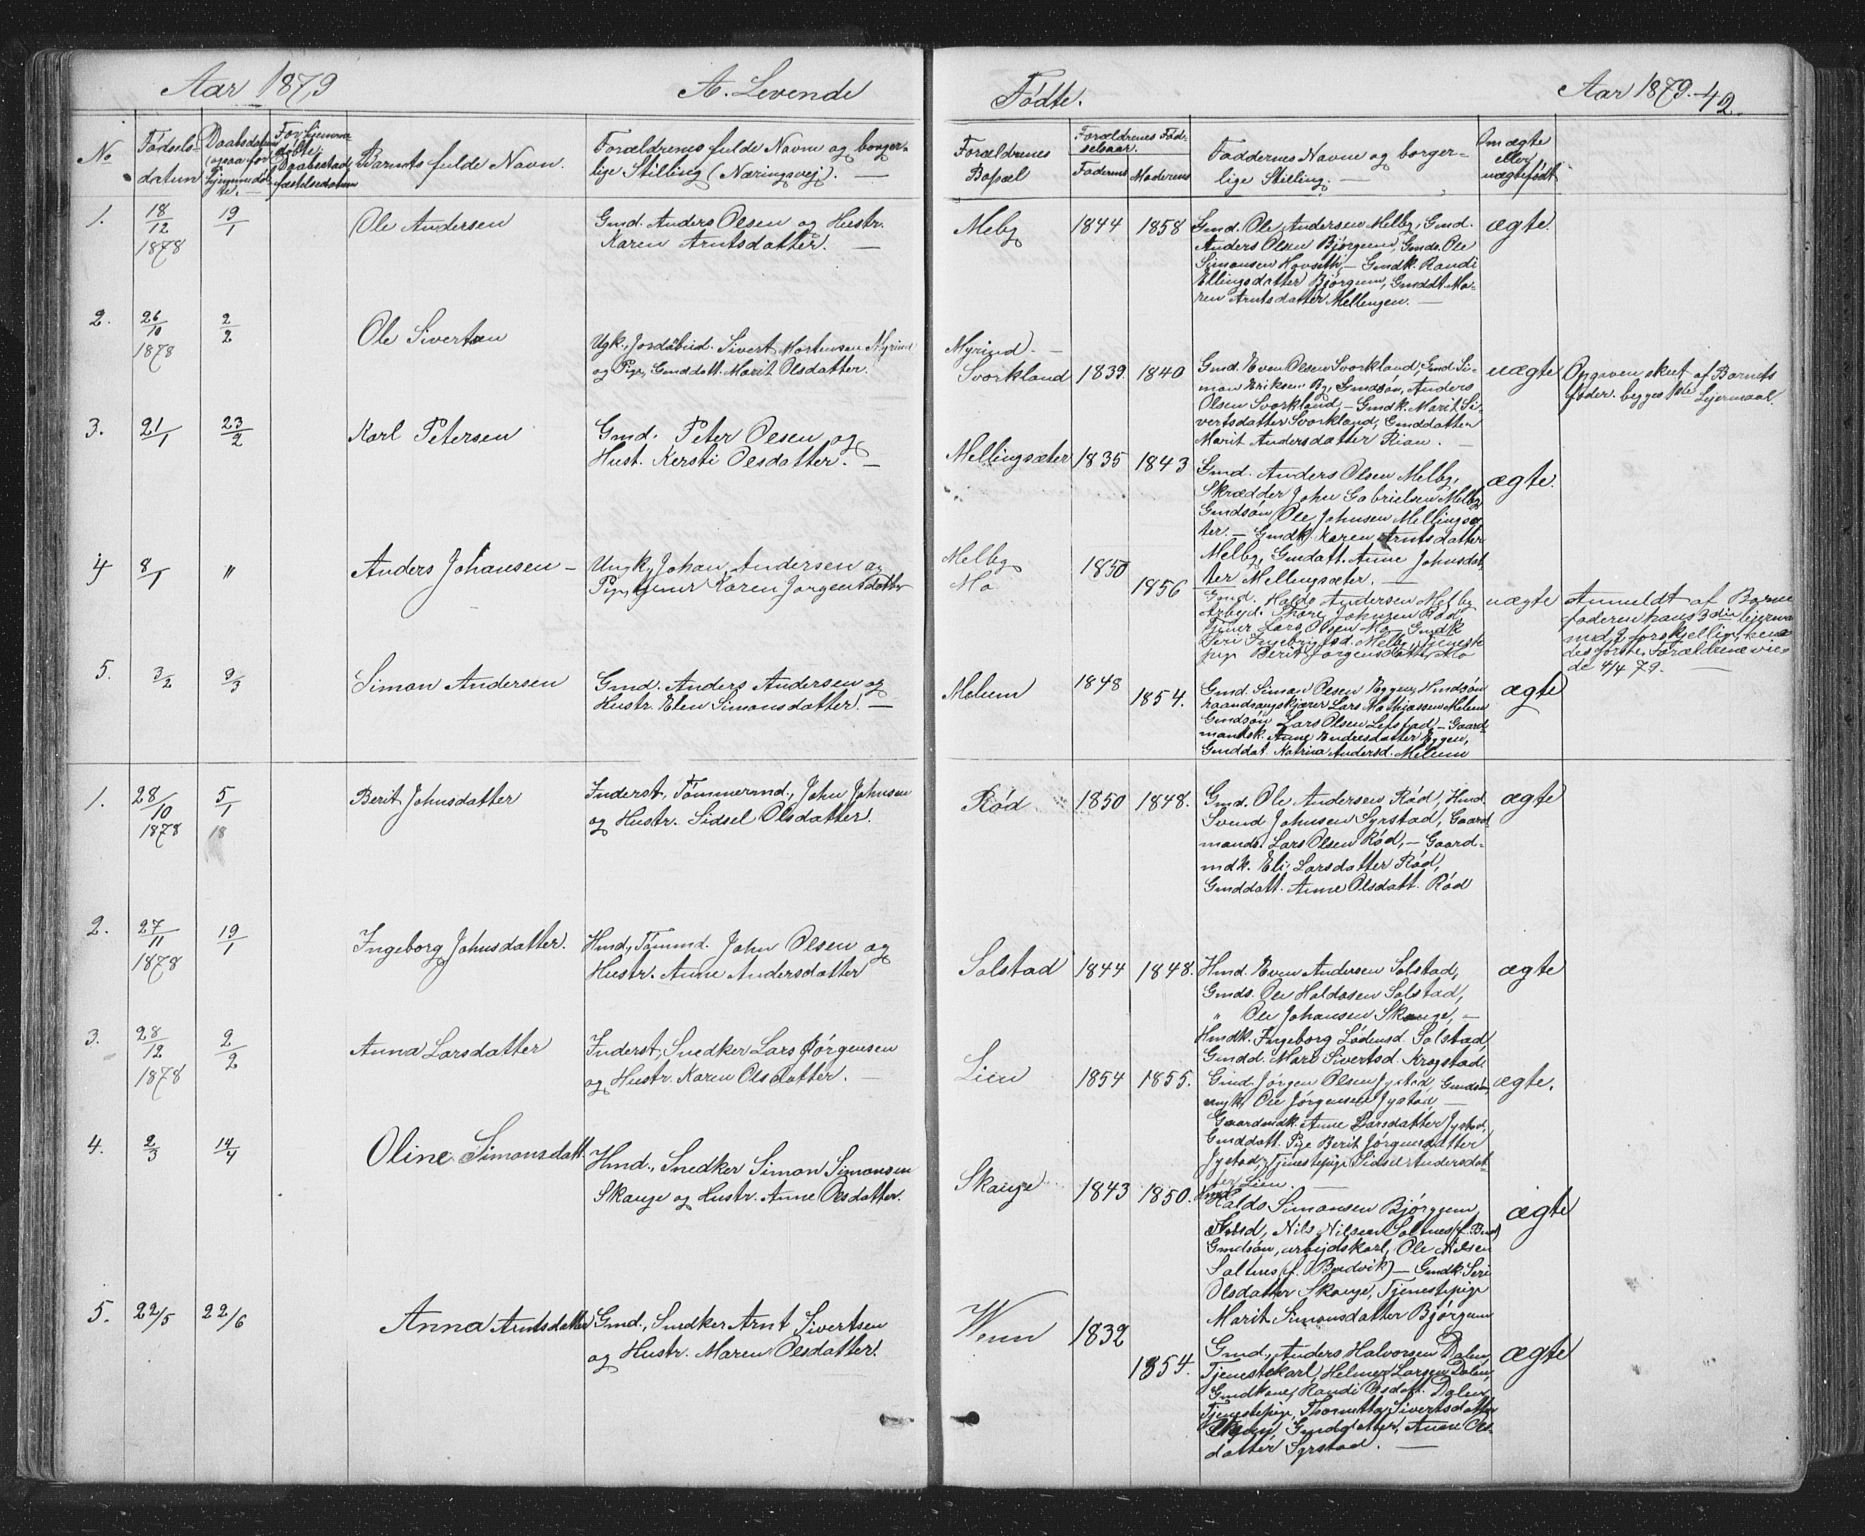 Aar 1879
A. Levende
Fødte.
Aar 1879.
42.
No
Fødsels-
datum
Daabsdatum
(ogsaa for
hjemmedøb-
te.
For hjemme
døbte,
Daabsstad-
fæstelsedatum
Barnets fulde Navn.
Forældrenes fulde Navn og borger-
lige Stilling (Næringsvej). —
Forældrenes
Bopæl
Forældrenes Fød-
selsaar.
Faderens
Moderens
Faddernes Navne og borger-
lige Stilling. —
Om ægte
eller
uægtefødt
1.
18/12
1878
19/1
Ole Andersen
Gmd. Anders Olsen og Hustr.
Karen Arntsdatter. —
Melby
1844
1858
Gmd. Ole Andersen Melby, Gmd.
Anders Olsen Bjørgum, Gmds. Ole
Simonsen Hovseth, — Gmdk. Randi
Ellingsdatter Bjørgum, Gmddt. Ma-
ren Arntsdatter Mellingen. —
ægte.
2.
26/10
1878
2/2
Ole Sivertsen
Ugk., Sivert Mortensen Myrind
og Pige, Gmddatt. Marit Olsdatter.
Myrind. —
Svorkland
1839.
1840
Gmd. Even Olsen Svorkland, Gmd. Si-
mon Eriksen By, Gmdsøn, Anders
Olsen Svorkland, — Gmdk. Marit Si-
vertsdatter Svorkland, Gmddatter
Marit Andersdatter Rian. —
uægte
Opgiven skeet af Barnets
fader. begges 1ste Lejermaal.
3.
21/1
23/2
Karl Petersen
Gmd. Peter Olsen og
Hust. Kersti Olsdatter. —
Mellingsæter
1835
1843
Gmd. Anders Olsen Melby,
Skrædder John Gabrielsen Melby,
Gmdsøn, Ole Johnsen Mellingsæ-
ter. — Gmdk. Karen Arntsdatter
Melby, Gmdatt. Anne Johnsdat-
ter Mellingsæter. —
ægte.
4
8/1
"
Anders Johansen —
Ungk. Johan Andersen og
Pige, Karen Jørgensdatter
Melby
Mo
1850
1856
Gmd. Haldo Andersen Melby
Arbejd. Johnsen Rød
Tjener Lars Olsen Mo, Gmdk
Ingebrigtsd. Melby, Tjeneste
pige Berit Jørgensdatter Mo
uægte
Anmeldt af Barne
faderen hans 3die lejerma
med 2 forskjellige, hen
des første. Forældrene vie
de 4/4 79. —
5.
3/2
9/3
Simon Andersen
Gmd. Anders Andersen og
Hustr. Elen Simonsdatter. —
Melum
1848
1854.
Gmd. Simon Olsen Eggen, Hmdsøn
Lars Mathiassen Melum
Gmdsøn Lars Olsen — Gaard-
mandsk. Anne Endresdatter Eggen,
Gmddat. Katrina Andersd. Melum
ægte
1.
28/10
1878
5/1
18
Berit Johnsdatter
Inderst, Tømmermd., John Johnsen
og Hustr. Sidsel Olsdatter.
Rød
1850
1848.
Gmd. Ole Andersen Rød, Hmd.
Svend Johnsen Syrstad, Gaard-
mands. Lars Olsen Rød, — Gaard-
mdk. Eli Larsdatter Rød,
Gmddatt. Anne Olsdatt. Rød
ægte
2.
27/11
1878
19/1
Ingeborg Johnsdatter.
Hmd., Tømmd. John Olsen og
Hustr. Anne Andersdatter
Solstad
1844
1848.
Hmd. Even Andersen Solstad,
Gmds. Ole Haldosen Solstad,
" Ole Johansen Skauge, —
Hmdk. Ingeborg Solstad,
Gmdd. Mari Sivertsd. Krogstad
ægte
3.
28/12
1878
2/2
Anna Larsdatter
Inderst, Snedker Lars Jørgensen
og Hustr. Karen Olsdatter. —
Lien
1854
1855.
Gmd. Jørgen Olsen Jystad, Gmdsøn,
ungk. Ole Jørgensen Jystad —
Gaardmdk. Anne Larsdatter Jystad
Gmddatt. Pige Berit Jørgensdatter
Jystad, Tjenestepige Sidsel Andersdat
ter Lien. —
ægte.
4.
2/3
14/4
Oline Simonsdatt.
Hmd., Snedker Simon Simonsen
Skauge og Hustr. Anne Olsdatter.
Skauge
1843
1850.
Hmd.
Haldo Simonsen Bjørgum,
Nils Nilsen Solnes
Gmdsøn, arbejdskarl, Ole Nilsen
Solnes (f. Bredvik) — Gmdk. Siri
Olsdatter Skauge, Tjenestepige
Marit Simonsdatter Bjørgum
ægte
5.
22/5
22/6
Anna Arntsdatter
Gmd., Snedker Arnt Sivertsen
og Hustr. Maren Olsdatter.
Wenn
1832
1854.
Gmd., Anders Halvorsen Dalen,
Tjenestekarl, Helmer Larsen Dalen,
Gmdkone, Randi Olsdatt. Dalen
Tjenestepige, Thometta Sivertsdatter
Gmddatter, Anne Ols-
datter Syrstad. —
ægte